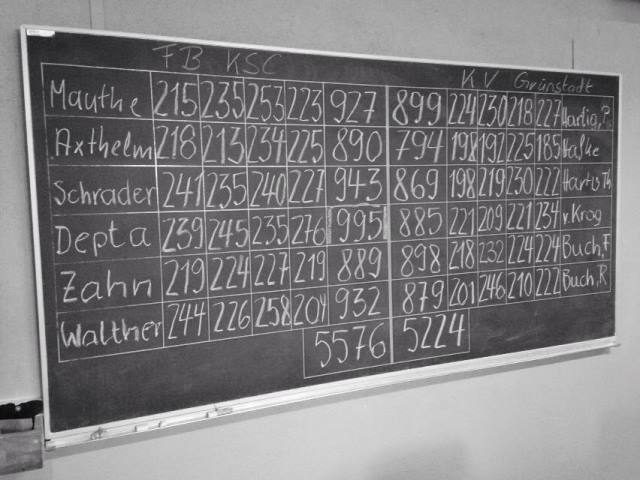 FB KSC
KV Grünstadt
Mauthe 215 235 253 223 927 899 224 230 218 227 Hartig, P.
Axthelm 218 213 234 225 890 794 198 192 225 185 Haske
Schrader 241 235 240 227 943 869 198 219 230 222 Hartig Th
Depta 239 245 235 276 995 885 221 209 221 234 v. Krog
Zahn 219 224 227 219 889 898 218 232 224 224 Buch, F
Walther 244 226 258 204 932 879 201 246 210 222 Buch, R
5576 5224